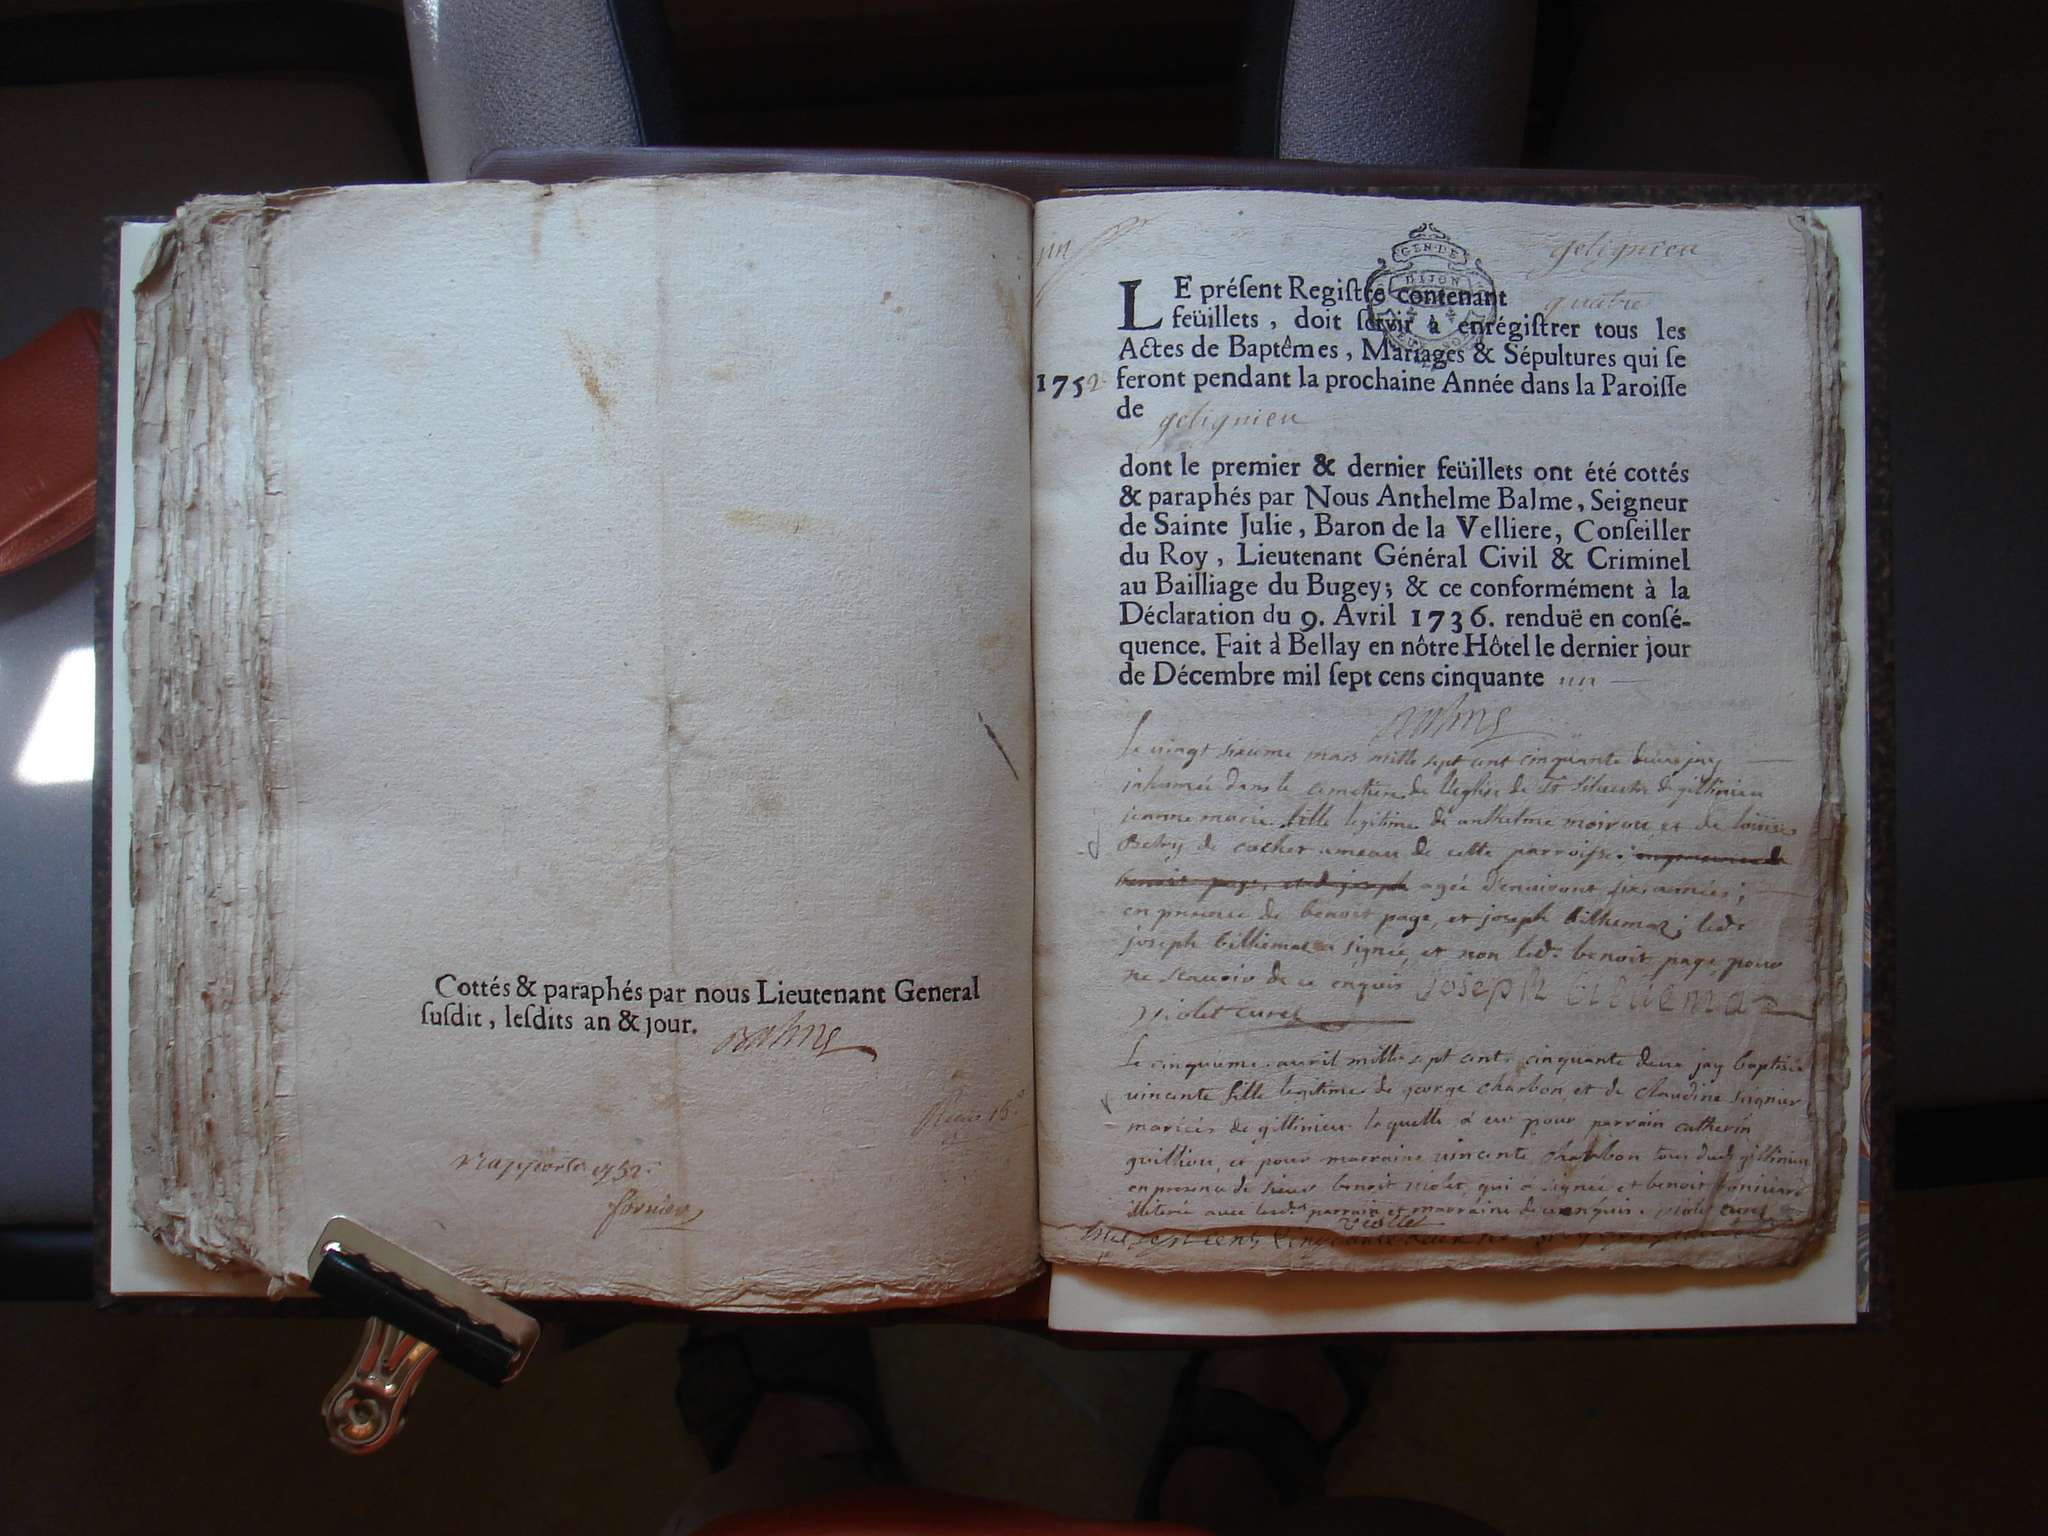 Cottés & paraphés par nous Lieutenant General
ſuſdit, leſdits an & jour.
Balme
rapporté 1752.
un
gelignieu
GEN·DE
DIJON
LE préſent Regiſtre contenant quatre
feüillets, doit ſervir à enrégiſtrer tous les
Actes de Baptêmes, Mariages & Sépultures qui ſe
1752 feront pendant la prochaine Année dans la Paroiſſe
de gelignieu
dont le premier & dernier feüillets ont été cottés
& paraphés par Nous Anthelme Balme, Seigneur
de Sainte Julie, Baron de la Velliere, Conſeiller
du Roy, Lieutenant Général Civil & Criminel
au Bailliage du Bugey; & ce conformément à la
Déclaration du 9. Avril 1736. renduë en conſé-
quence. Fait à Bellay en nôtre Hôtel le dernier jour
de Décembre mil ſept cens cinquante un
Balme
Le vingt sixieme mars mille sept cent cinquante deux jay
inhumée dans le cemetiere de leglise de St Silvestre de gillinieu
jeanne marie fille legitime de anthelme moiron et de louise
de cocher ameau de cette parroisse
benoit page, et de joseph agée d'environt six années;
en presence de benoit page, et joseph billiemaz; led.
joseph billiemaz a signée, et non led. benoit page, pour
ne scavoir de ce enquis joseph biliiemaz
violet curé
Le cinquieme avril mille sept cent cinquante deux jay baptisée
vincente fille legitime de george charbon et de claudine seignier
mariés de gillinieu laquelle a eu pour parrain catherin
guilliou, et pour marraine vincente charbon tous dud. gillinieu
en presence de sieur benoit violet qui a signée et benoit
illiteré avec lesd. parrain et marraine de ce enquis. violet curé
violet